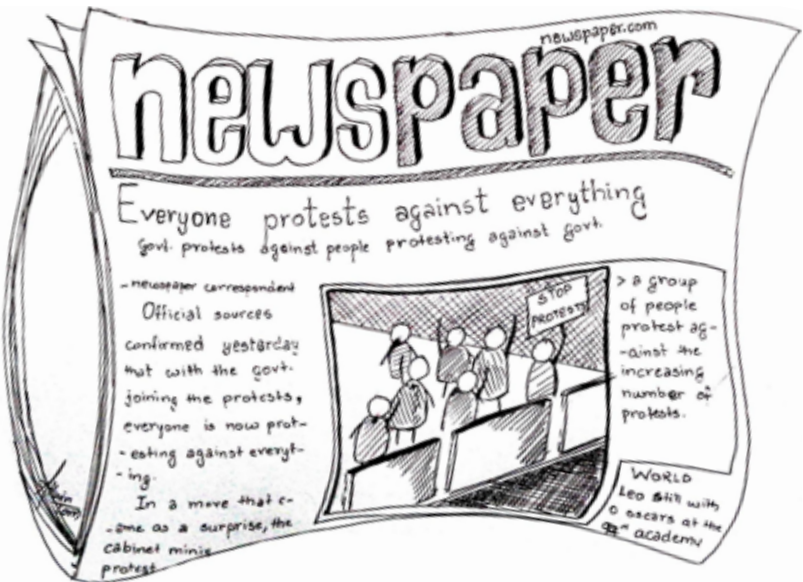 newspaper.com
newspaper
Everyone protests against everything
Govt. protests against people protesting against govt.
- newspaper correspondent
Official sources
confirmed yesterday
that with the govt.
joining the protests,
everyone is now prot-
-esting against everyt-
-ing.
In a move that c-
-ame as a surprise, the
cabinet minis
protest
STOP
PROTESTS
> a group
of people
protest ag-
-ainst the
increasing
number of
protests.
WORLD
Leo still with
0 oscars at the
academy